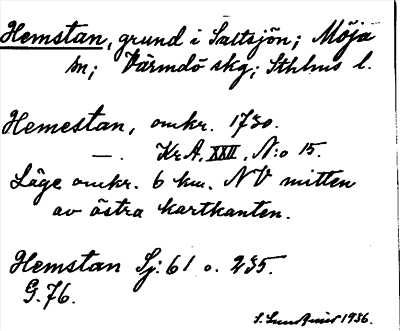 Hemstan, grund i Saltsjön; Möja
sn; Värmdö skg; Sthlms l.
Hemestan, omkr. 1730.
—. Kr.A. XXII, N:o 15.
Läge omkr. 6 km. NV mitten
av östra kartkanten.
Hemstan Sj: 61 o. 235.
G. 76.
S. 1936.